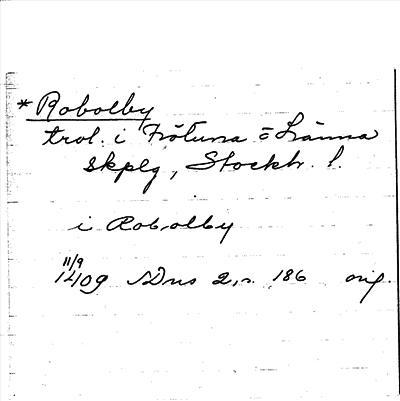 * Robolby
trol. i Frötuna o Länna
skplg, Stockh. l.
i Robolby
11/9
1409 SDns 2, s. 186 orig.